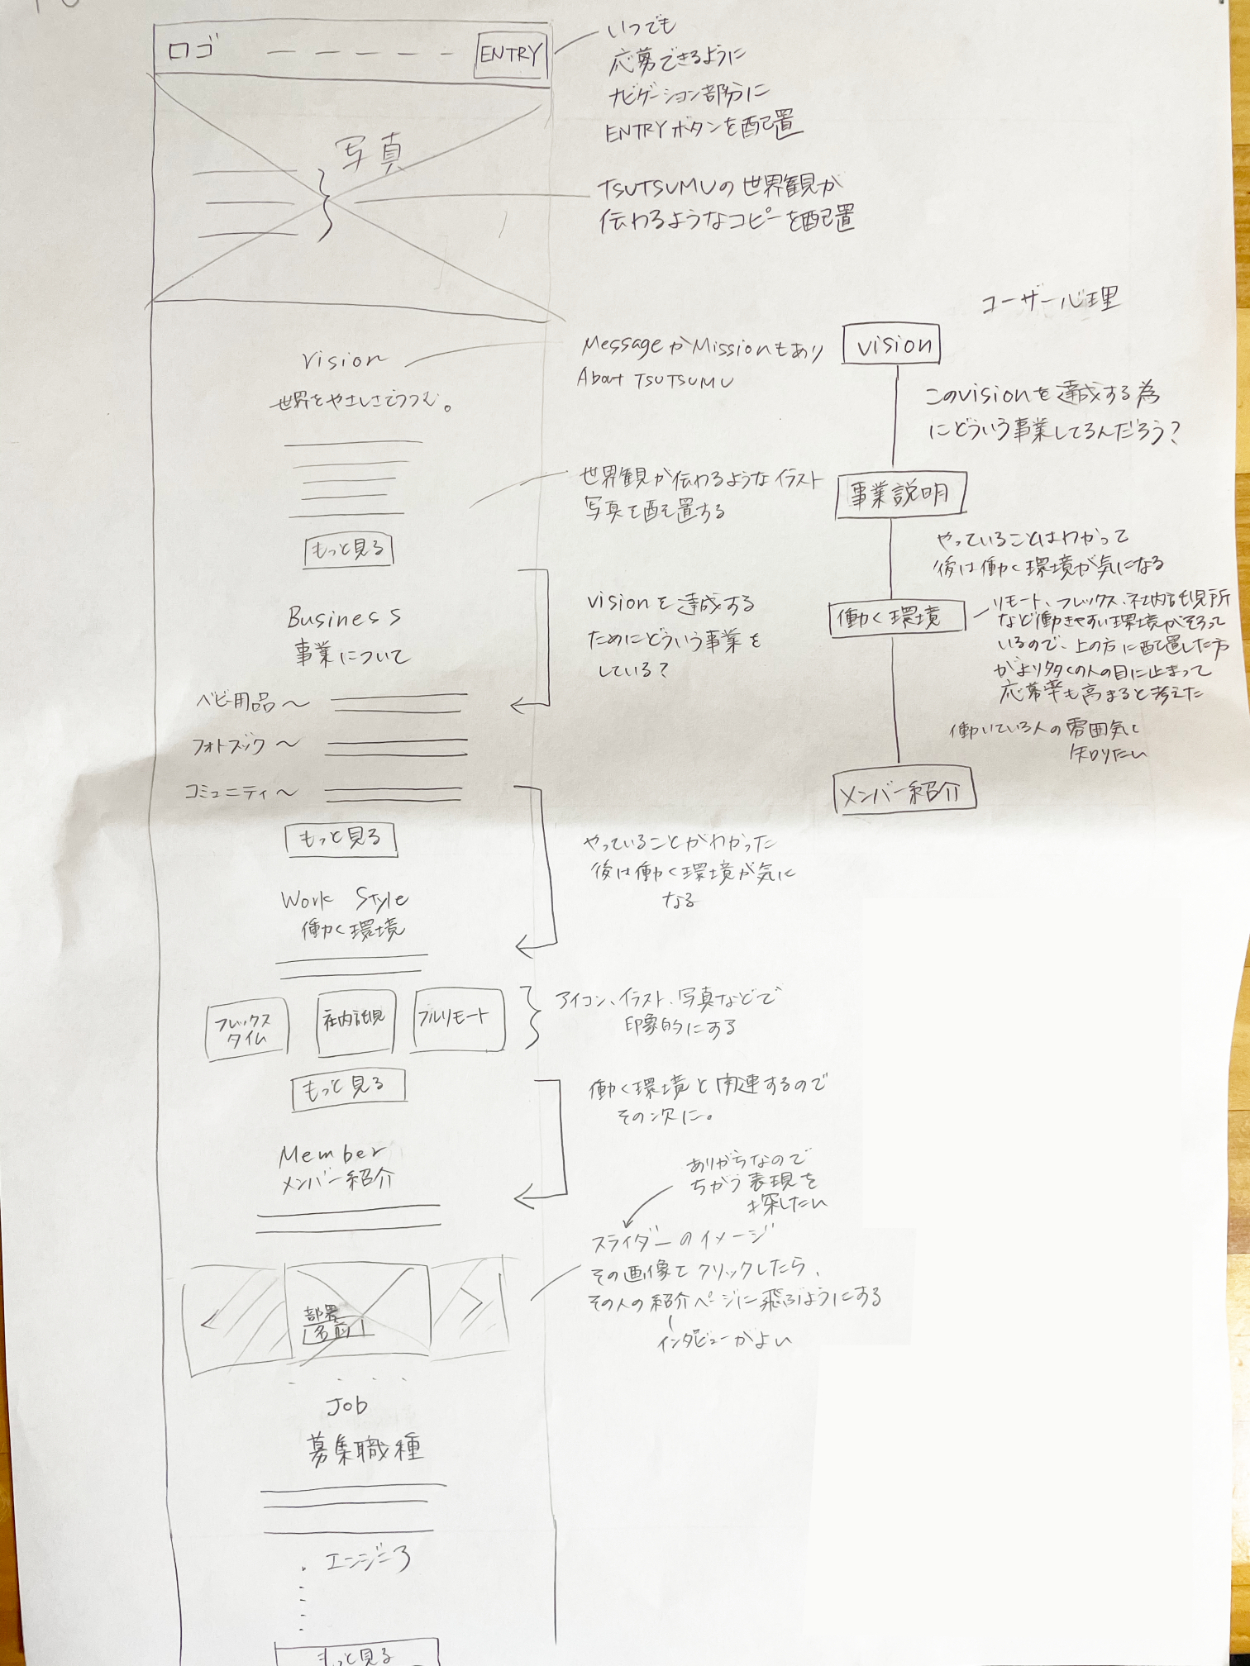 ロゴ
ENTRY
いつでも
応募できるように
ナビゲーション部分に
ENTRYボタンを配置
写真
TSUTSUMUの世界観が
伝わるようなコピーを配置
Vision
世界をやさしさでつつむ。
MessageかMissionもあり
About TSUTSUMU
世界観が伝わるようなイラスト
写真を配置する
もっと見る
Business
事業について
visionを達成する
ためにどういう事業を
している?
ベビー用品〜
フォトブック〜
コミュニティ〜
もっと見る
やっていることがわかった
後は働く環境が気に
なる
Work Style
働く環境
フレックス
タイム
社内託児
フルリモート
アイコン、イラスト、写真などで
印象的にする
もっと見る
働く環境と関連するので
その次に。
Member
メンバー紹介
ありがちなので
ちがう表現を
探したい
スライダーのイメージ
その画像をクリックしたら、
その人の紹介ページに飛ぶようにする
インタビューがよい
部署
名前
Job
募集職種
・エンジニア
もっと見る
ユーザー心理
vision
このvisionを達成する為
にどういう事業してるんだろう?
事業説明
やっていることはわかって
後は働く環境が気になる
働く環境
リモート、フレックス、社内託児所
など働きやすい環境がそろって
いるので、上の方に配置した方
がより多くの人の目に止まって
応募率も高まると考えた
働いている人の雰囲気も
知りたい
メンバー紹介